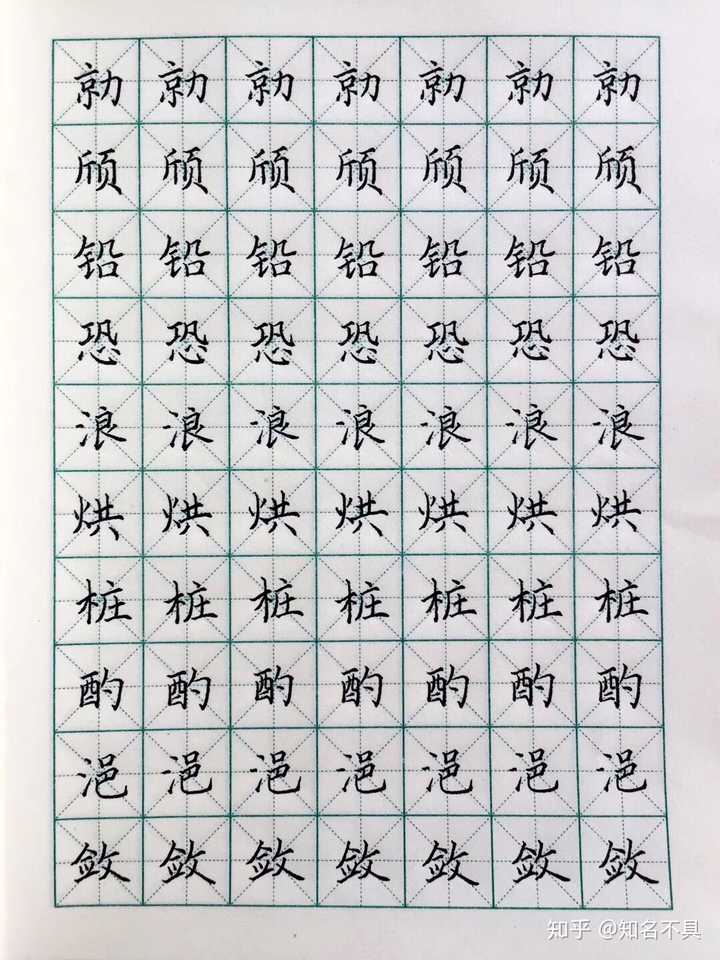 勍勍勍勍勍勍勍
颀颀颀颀颀颀颀
铅铅铅铅铅铅铅
恐恐恐恐恐恐恐
浪浪浪浪浪浪浪
烘烘烘烘烘烘烘
桩桩桩桩桩桩桩
酌酌酌酌酌酌酌
浥浥浥浥浥浥浥
敛敛敛敛敛敛敛
知乎 @知名不具